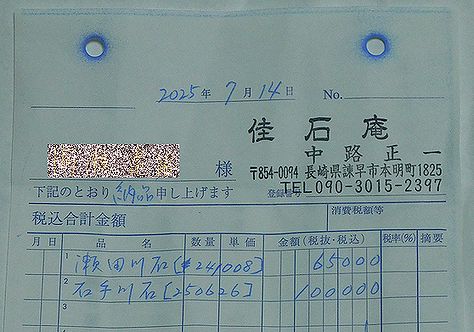 2025年 7月 14日 No.
佳石庵
中路正一
様 〒854-0094 長崎県諫早市本明町1825
下記のとおり 納品 申し上げます 登録番号 TEL090-3015-2397
税込合計金額 消費税額等
月 日 品名 数量 単価 金額(税抜・税込) 税率(%) 摘要
1 瀬田川石(#241008) 65000
2 石手川石(250626) 100000
3